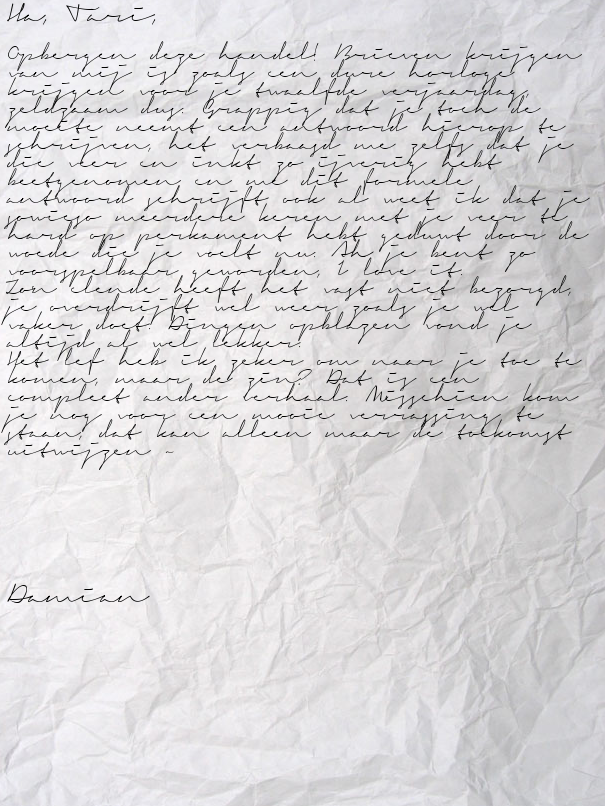 Ha, Tari,
Opbergen deze handel! Brieven krijgen
van mij is zoals een dure horloge
krijgen voor je twaalfde verjaardag,
zeldzaam dus. Grappig dat je toch de
moeite neemt een antwoord hierop te
schrijven, het verbaasd me zelfs dat je
die veer en inkt zo ijverig hebt
beetgenomen en me dit formele
antwoord schrijft, ook al weet ik dat je
sowieso meerdere keren met je veer te
hard op perkament hebt geduwt door de
woede die je voelt nu. Ah je bent zo
voorspelbaar geworden, I love it.
Zon elende heeft het vast niet bezorgd,
je overdrijft wel weer zoals je wel
vaker doet. Dingen opblazen vond je
altijd al wel lekker.
Het lef heb ik zeker om naar je toe te
komen, maar de zin? Dat is een
compleet ander verhaal. Misschien kom
je nog voor een mooie verrassing te
staan, dat kan alleen maar de toekomst
uitwijzen ~
Damian